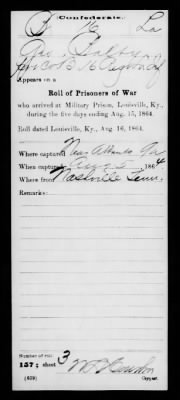 Confederate.
B 16 La
Appears on a
Roll of Prisoners of War
who arrived at Military Prison, Louisville, Ky.,
during the five days ending Aug. 15, 1864.
Roll dated Louisville, Ky., Aug. 16, 1864.
Where captured Near Atlanta Ga
When captured Aug 5, 1864
Where from Nashville Tenn.
Remarks:
Number of roll
157; sheet 3
(639) Copyist.